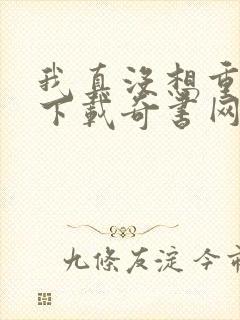 我真没想重
下载奇书网
九條友淀今市